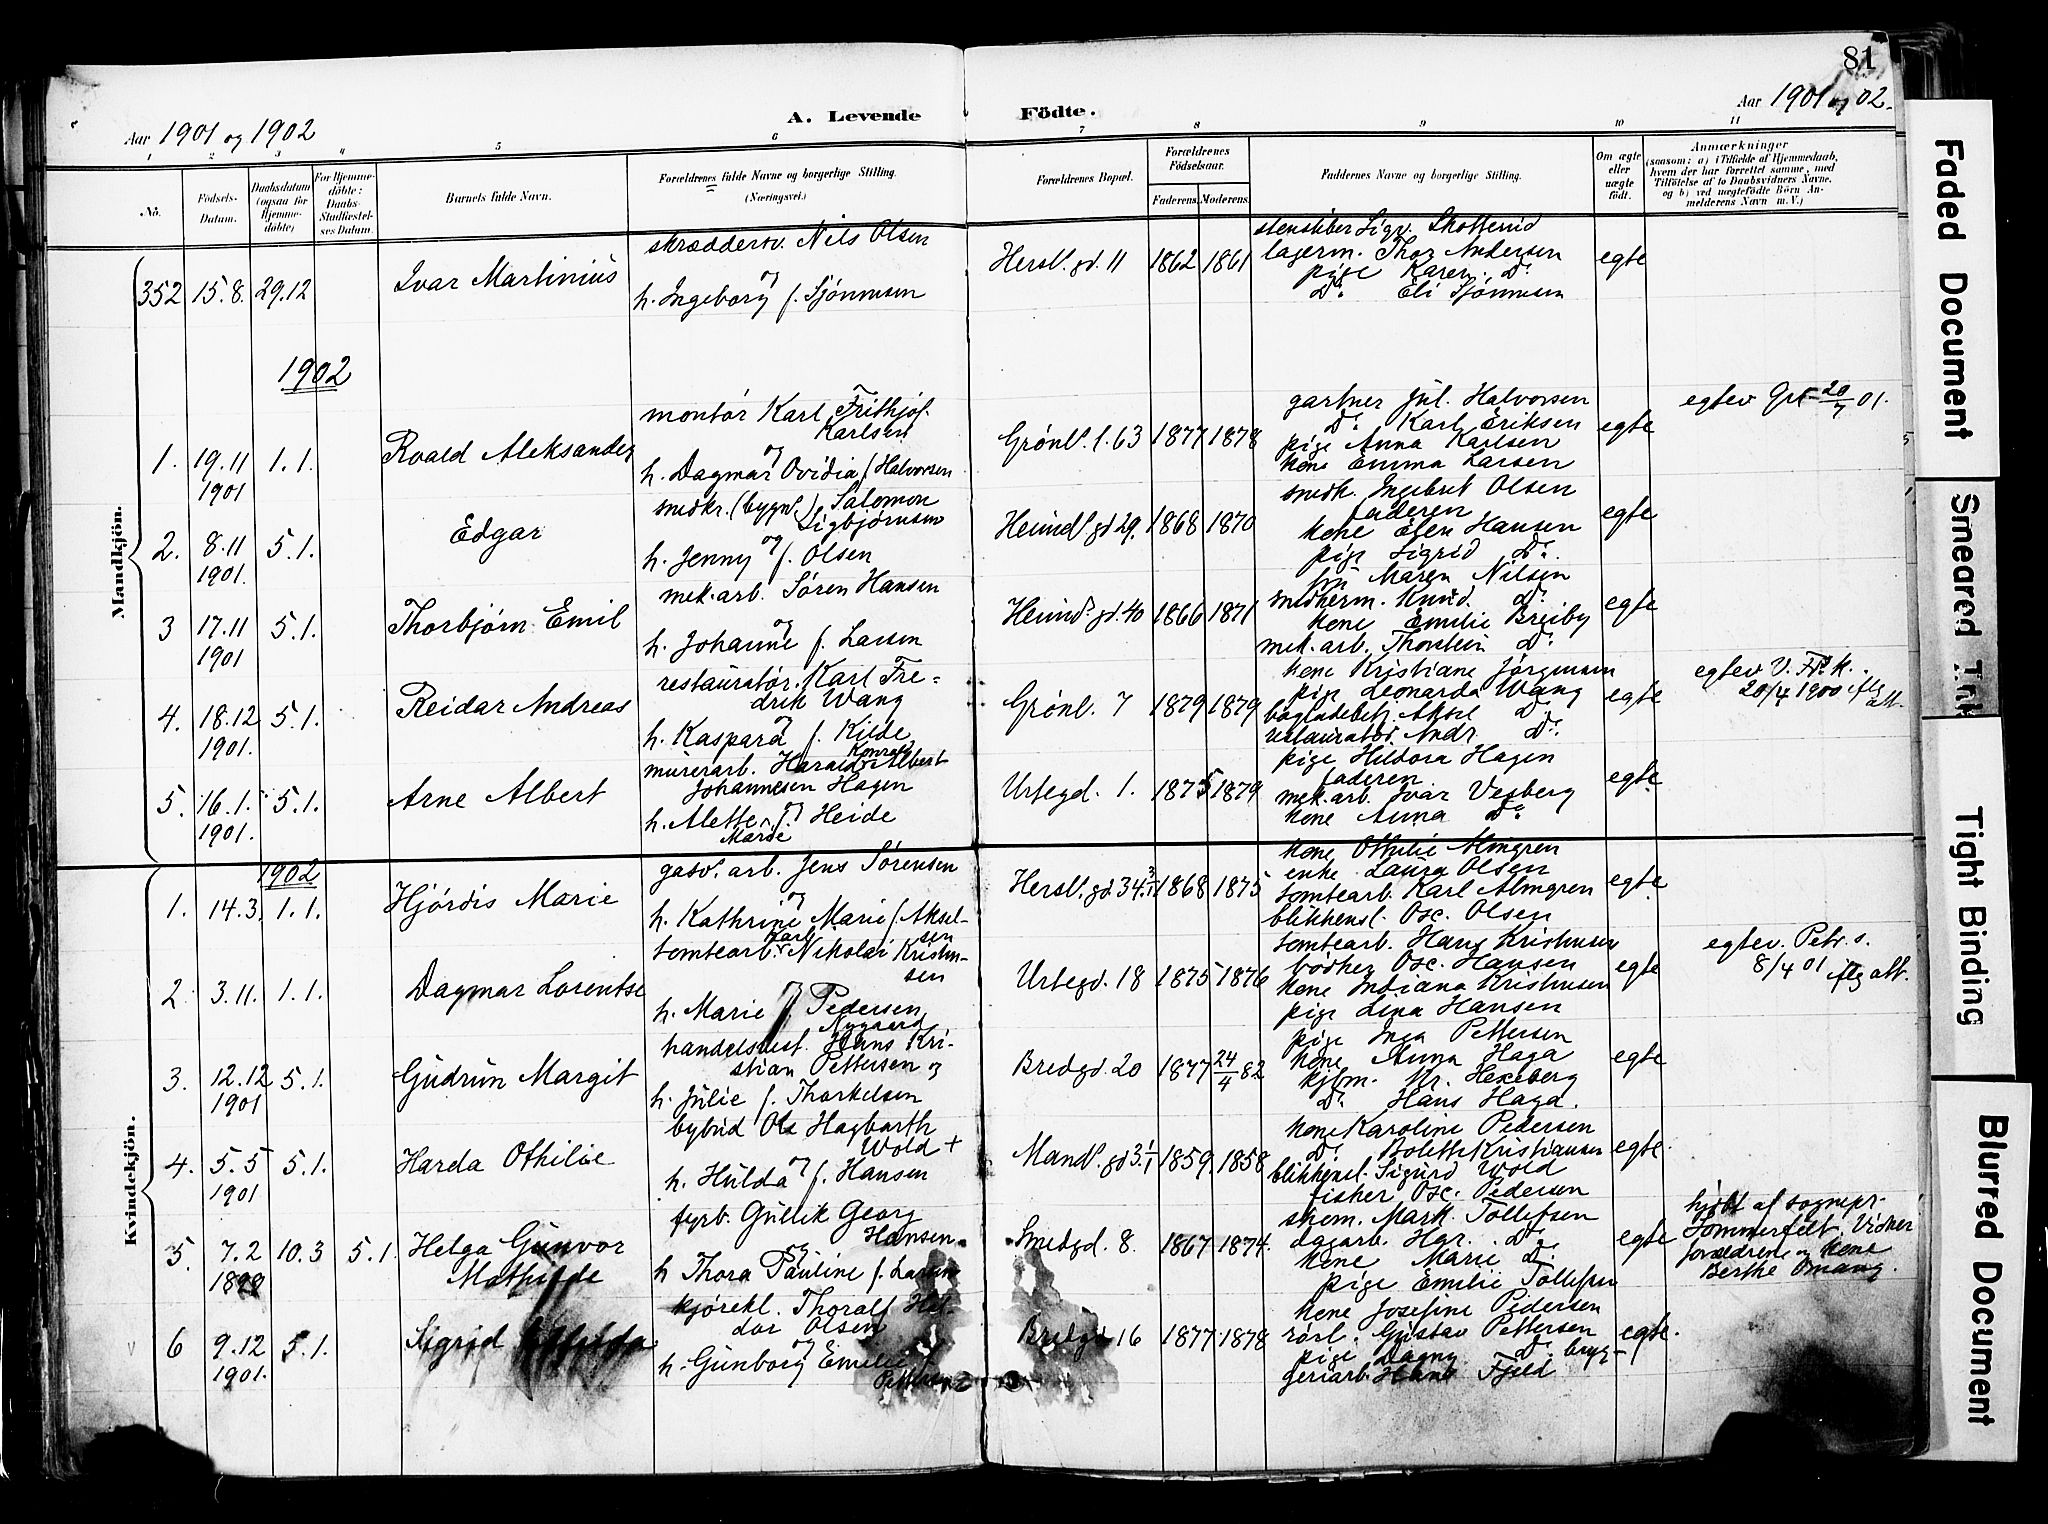 81
Aar 1901 og 1902
A. Levende Födte.
Aar 1901 og 02.
1 2 3 4 5 6 7 8 9 10 11
No.
Födsels-Datum.
Daabsdatum (ogsaa for Hjemme-döbte)
For Hjemme-döbte: Daabs-Stadfæstel-ses Datum.
Barnets fulde Navn.
Forældrenes fulde Navne og borgerlige Stilling. (Næringsvei.)
Forældrenes Bopæl.
Forældrenes Födselsaar.
Faderens. Moderens.
Faddernes Navne og borgerlige Stilling.
Om ægte eller uægte födt.
Anmærkninger
(saasom: a) i Tilfælde af Hjemmedaab, hvem der har forrettet samme, med Tilföielse af to Daabsvidners Navne, og b) ved uægtefödte Börn An-melderens Navn m. V.)
Mandkjön.
352 15.8. 29.12 Ivar Martinius
skræddersv. Nils Olsen
og
h. Ingeborg f. Sjönnesen
Hersl. gd. 11 1862 1861
lagerm. Thor Andersen
pige Karen Do.
Do. Eli Sjönnesen
egte
1902
1. 19.11 1901 1.1. Roald Aleksander
montör Karl Frithjof
Karlsen
og
h. Dagmar Ovidia f. Halvorsen
Grönl. l. 63 1877 1878
gartner Jul. Halvorsen
Do. Karl Eriksen
pige Anna Karlsen
kone Emma Larsen
egte
egtev Grl 20/7 01.
2. 8.11 1901. 5.1. Edgar
snedkr. (bygn.) Salomon
Sigbjörnsen
og
h. Jenny f. Olsen
Heimd. gd 29. 1868 1870
snedk. Ingebret Olsen
faderen
kone Elen Hansen
pige Sigrid Do.
egte
3 17.11 1901 5.1. Thorbjörn Emil
mek. arb. Sören Hansen
og
h. Johanne f. Larsen
Heimd. gd. 40 1866 1871
fru Maren Nilsen
snedkerm. Knud. Do.
kone Emilie Breiby
mek. arb. Thorstein Do.
egte
4. 18.12 1901. 5.1. Reidar Andreas
restauratör. Karl Fre=
drik Wang
og
h. Kaspara f. Kilde
Grönl. 7 1879 1879
kone Kristiane Jörgensen
pige Leonarda Wang
Aksel Do.
restauratör. Andr. Do.
egte
egtev V. Fr. k.
20/4 1900 iflg att.
5. 16.1. 1901. 5.1. Arne Albert
murerarb. Harald Konrad Albert
Johannesen Hagen
og
h. Alette Marie f. Heide
Urtegd. 1. 1875 1879
pige Hildora Hagen
faderen
mek. arb. Ivar Vesberg
kone Anna Do.
egte
Kvindekjön.
1902
1. 14.3. 1.1. Hjördis Marie
gasv. arb. Jens Sörensen
og
h. Kathrine Marie f. Aksel-
sen
Hersl. gd 34. 1868 1875
kone Othilie Almgren
enke Laura Olsen
tomtearb. Karl Almgren
blikkensl. Osc. Olsen
egte
2. 3.11. 1.1. Dagmar Lorentse
tomtearb. Karl Nikolai Kristen-
sen
og
h. Marie f. Pedersen
Urtegd. 18 1875 1876
tomtearb. Hans Kristensen
bödker Osc. Hansen
kone Indiana Kristensen
pige Lina Hansen
egte
egtev. Petr. s.
8/4 01 iflg att.
3. 12.12 1901 5.1. Gudrun Margit
handelsbest. Nygaard Hans Kri-
stian Pettersen og
h. Julie f. Thorkelsen
Bredgd. 20 1877 24/4 82
pige Inga Pettersen
kone Anna Haga
kjbm. Kr. Hexeberg
Do. Hans Haga.
egte
4. 5.5 1901 5.1. Harda Othilie
bybud Ole Hagbarth
Wold +
og
h. Hulda f. Hansen
Mandl. gd 3 1859. 1858
kone Karoline Pedersen
Do. Bolette Kristiansen
blikkensl. Sigurd Wold
fisker Osc. Pedersen
egte
5. 7.2 10.3 5.1. Helga Gunvor
Mathilde
fyrb. Gullik Georg
Hansen
og
h Thora Pauline f. Larsen
Smedgd. 8. 1867 1874.
skom. Mark. Tollefsen
dagarb. Har. Do.
kone Marie Do.
pige Emilie Tollefsen
egte
hjdbt af sognepr.
Sommerfelt. Vidner
forældrene og kone
Berthe Omang.
6 9.12 1901. 5.1. Sigrid
kjörekl. Thoralf Hal-
dor Olsen
og
h. Gunborg Emilie f.
Pettersen
Bredgd 16 1877 1878
kone Josefine Pedersen
rörl. Gustav Pettersen
pige Dagny Do. bryg-
geriarb. Hans Fjeld
egte.
Faded Document
Smeared Ink
Tight Binding
Blurred Document